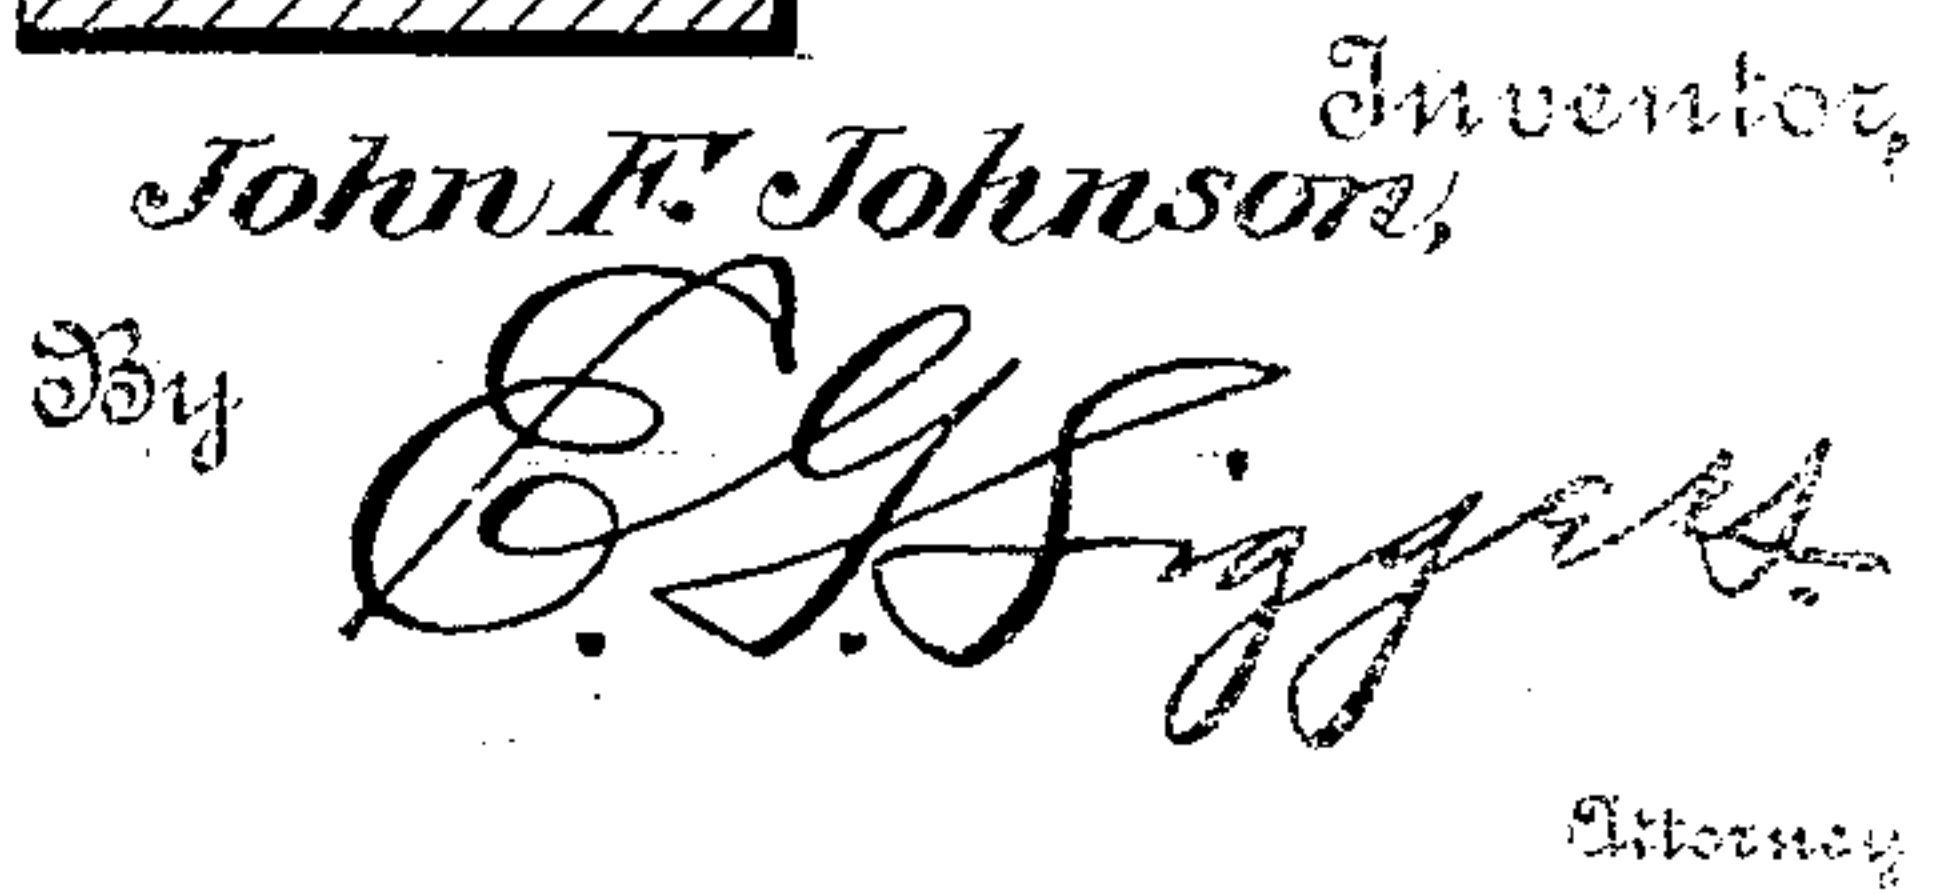 Inventor,
John F. Johnson,
By E. G. Siggers.
Attorney